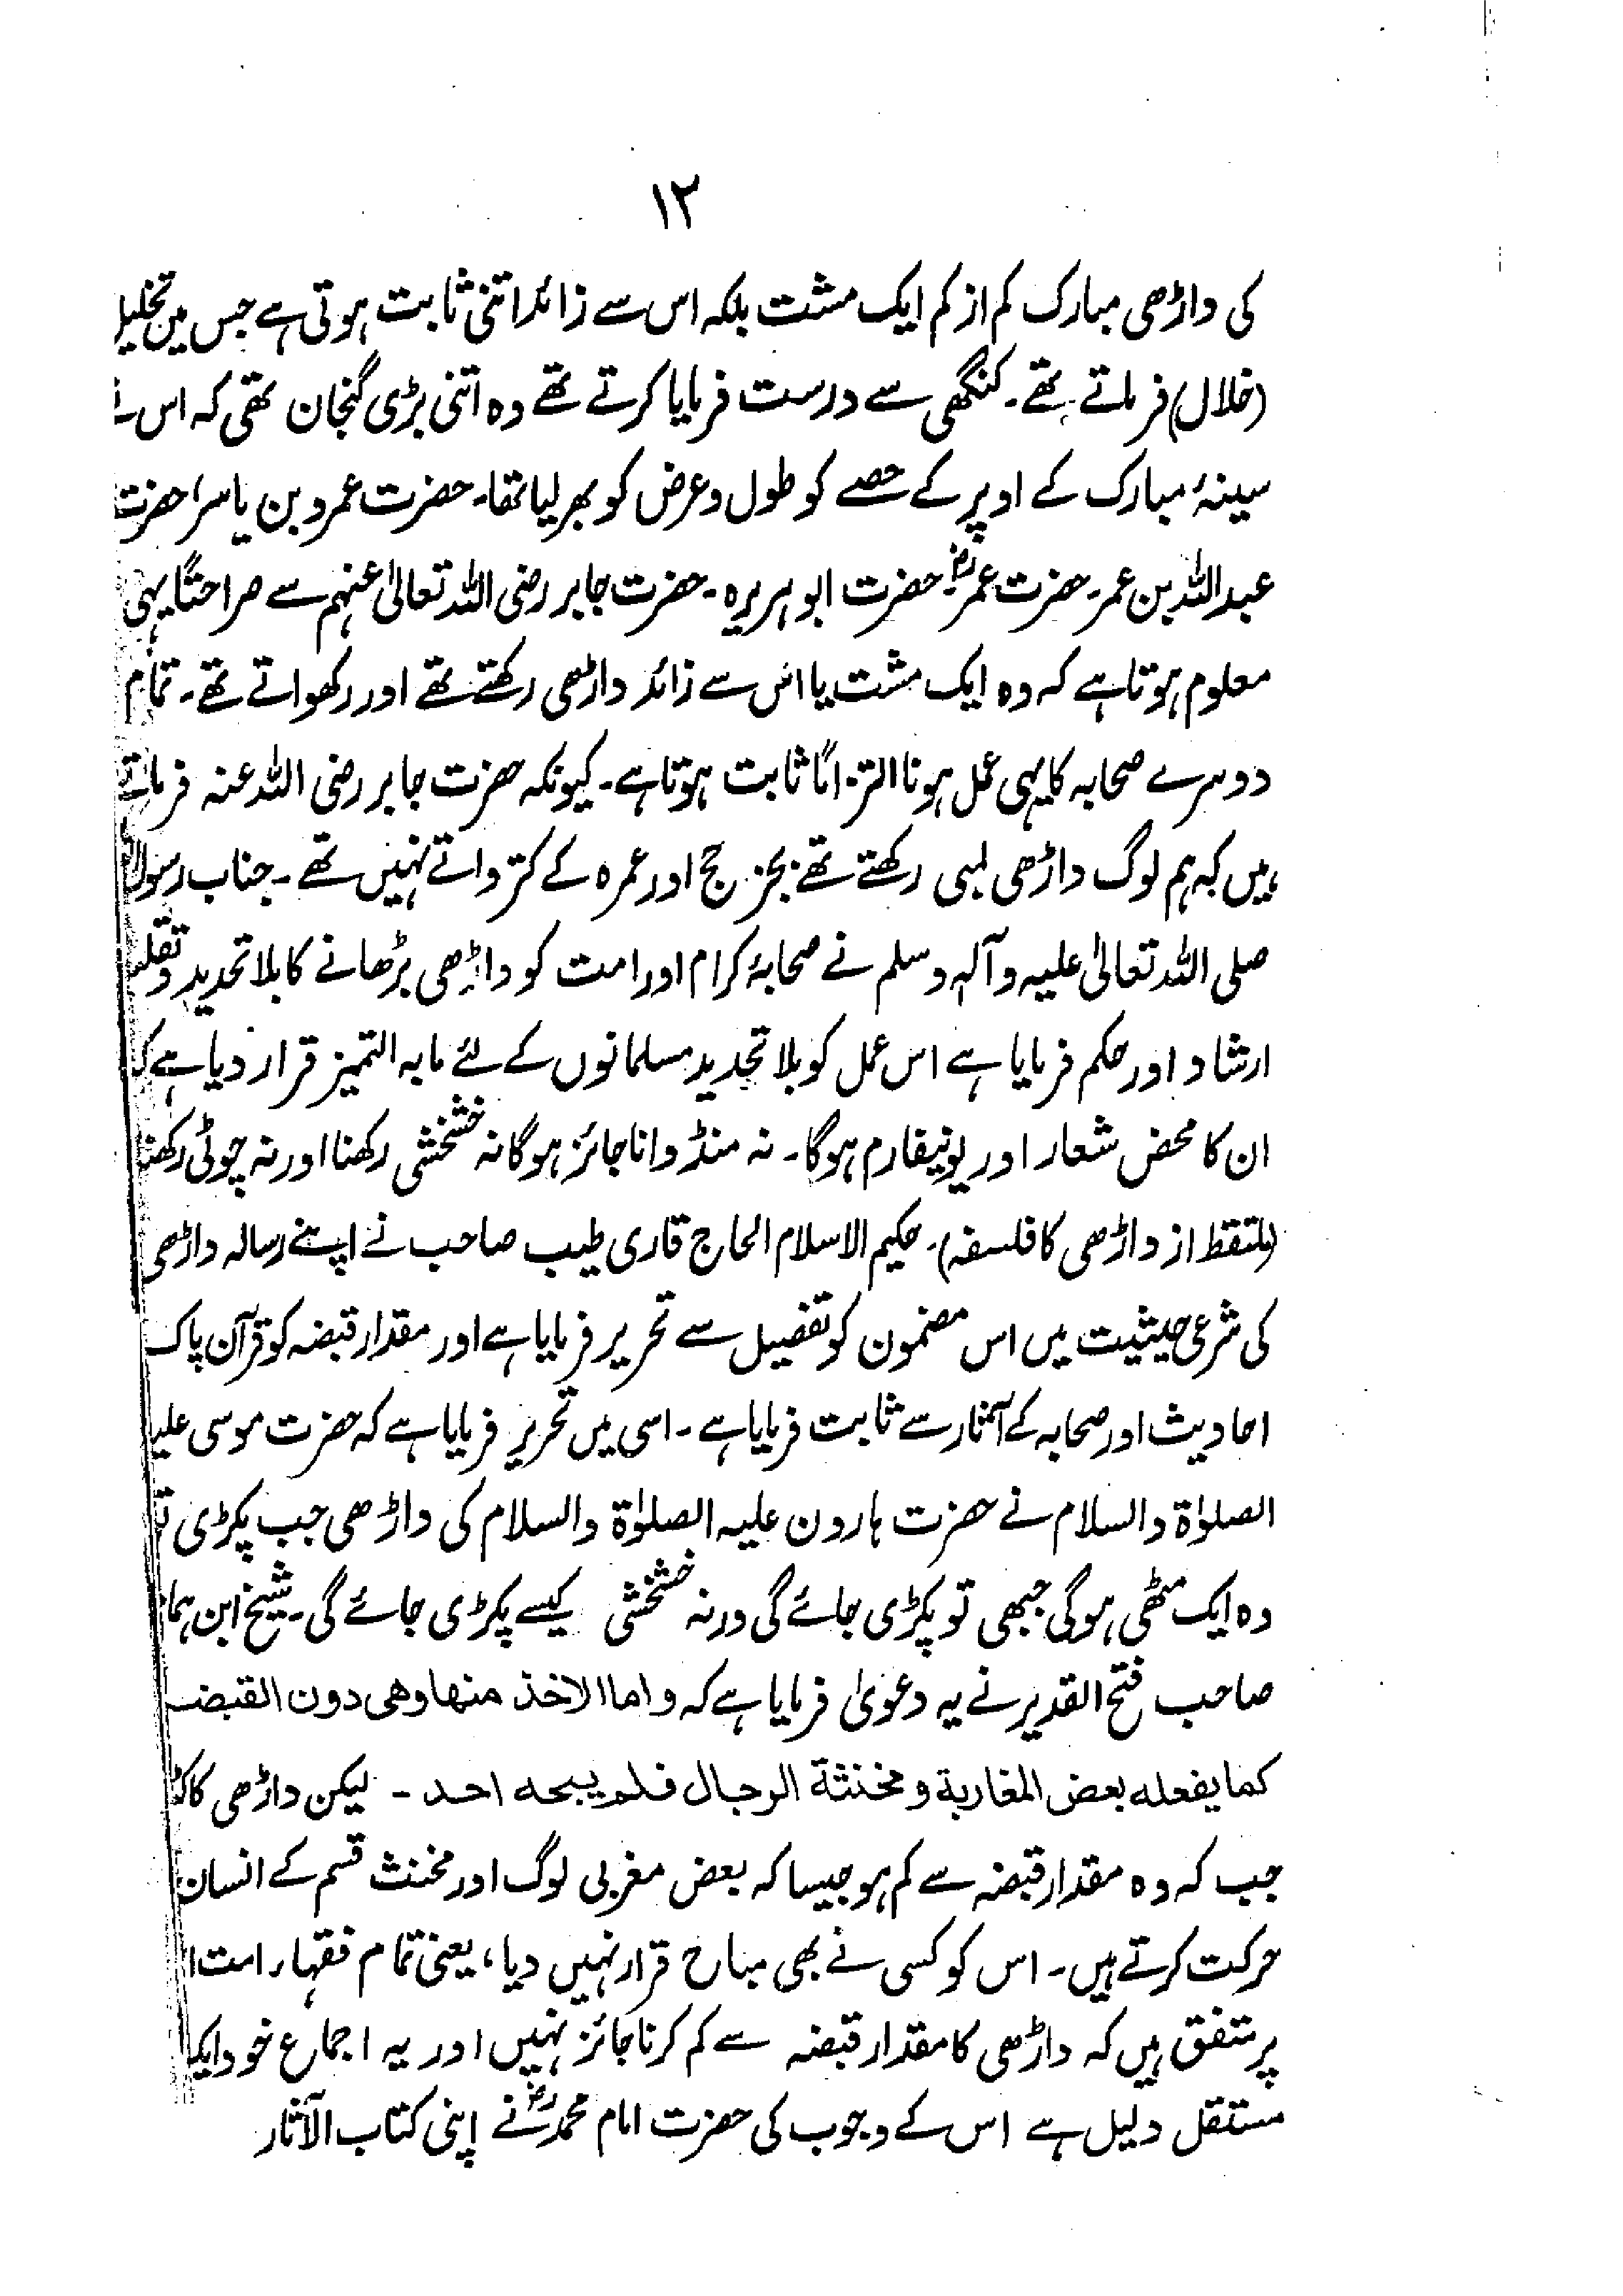 ۱۲
کی داڑھی مبارک کم از کم ایک مشت بلکہ اس سے زائد اتنی ثابت ہوتی ہے جس میں تخلیل
(خلال) فرماتے تھے۔ کنگھی سے درست فرمایا کرتے تھے وہ اتنی بڑی گنجان تھی کہ اس
سینۂ مبارک کے اوپر کے حصے کو طول و عرض کو بھر لیا تھا۔ حضرت عمرو بن یاسر، حضرت
عبداللہ بن عمر۔ حضرت عمرؓ۔ حضرت ابو ہریرہ۔ حضرت جابر رضی اللہ تعالیٰ عنہم سے صراحتاً یہی
معلوم ہوتا ہے کہ وہ ایک مشت یا اس سے زائد داڑھی رکھتے تھے اور رکھواتے تھے۔ تمام
دوسرے صحابہ کا یہی عمل ہونا التزاماً ثابت ہوتا ہے۔ کیونکہ حضرت جابر رضی اللہ عنہ فرماتے
ہیں کہ ہم لوگ داڑھی لمبی رکھتے تھے بجز حج اور عمرہ کے کترواتے نہیں تھے۔ جناب رسول
صلی اللہ تعالیٰ علیہ وآلہ وسلم نے صحابۂ کرام اور امت کو داڑھی بڑھانے کا بلا تحدید و
ارشاد اور حکم فرمایا ہے اس عمل کو بلا تحدید مسلمانوں کے لئے مابہ التمیز قرار دیا ہے
ان کا محض شعار اور یونیفارم ہوگا۔ نہ منڈوانا جائز ہوگا نہ خشخشی رکھنا اور نہ چوٹی رکھنا
(ملتقط از داڑھی کا فلسفہ)۔ حکیم الاسلام الحاج قاری طیب صاحب نے اپنے رسالہ داڑھی
کی شرعی حیثیت میں اس مضمون کو تفصیل سے تحریر فرمایا ہے اور مقدار قبضہ کو قرآن پاک
احادیث اور صحابہ کے آثار سے ثابت فرمایا ہے۔ اسی میں تحریر فرمایا ہے کہ حضرت موسی علیہ
الصلوٰۃ والسلام نے حضرت ہارون علیہ الصلوٰۃ والسلام کی داڑھی جب پکڑی تو
وہ ایک مٹھی ہوگی جبھی تو پکڑی جائے گی ورنہ خشخشی کیسے پکڑی جائے گی۔ شیخ ابن ہمام
صاحب فتح القدیر نے یہ دعویٰ فرمایا ہے کہ واما الاخذ منھا وھی دون القبضہ
کما یفعلہ بعض المغاربة ومخنثة الرجال فلم یبحہ احد۔ لیکن داڑھی کا
جب کہ وہ مقدار قبضہ سے کم ہو جیسا کہ بعض مغربی لوگ اور مخنث قسم کے انسان
حرکت کرتے ہیں۔ اس کو کسی نے بھی مباح قرار نہیں دیا، یعنی تمام فقہاء امت
پر متفق ہیں کہ داڑھی کا مقدار قبضہ سے کم کرنا جائز نہیں اور یہ اجماع خود ایک
مستقل دلیل ہے اس کے وجوب کی حضرت امام محمدؒ نے اپنی کتاب الآثار